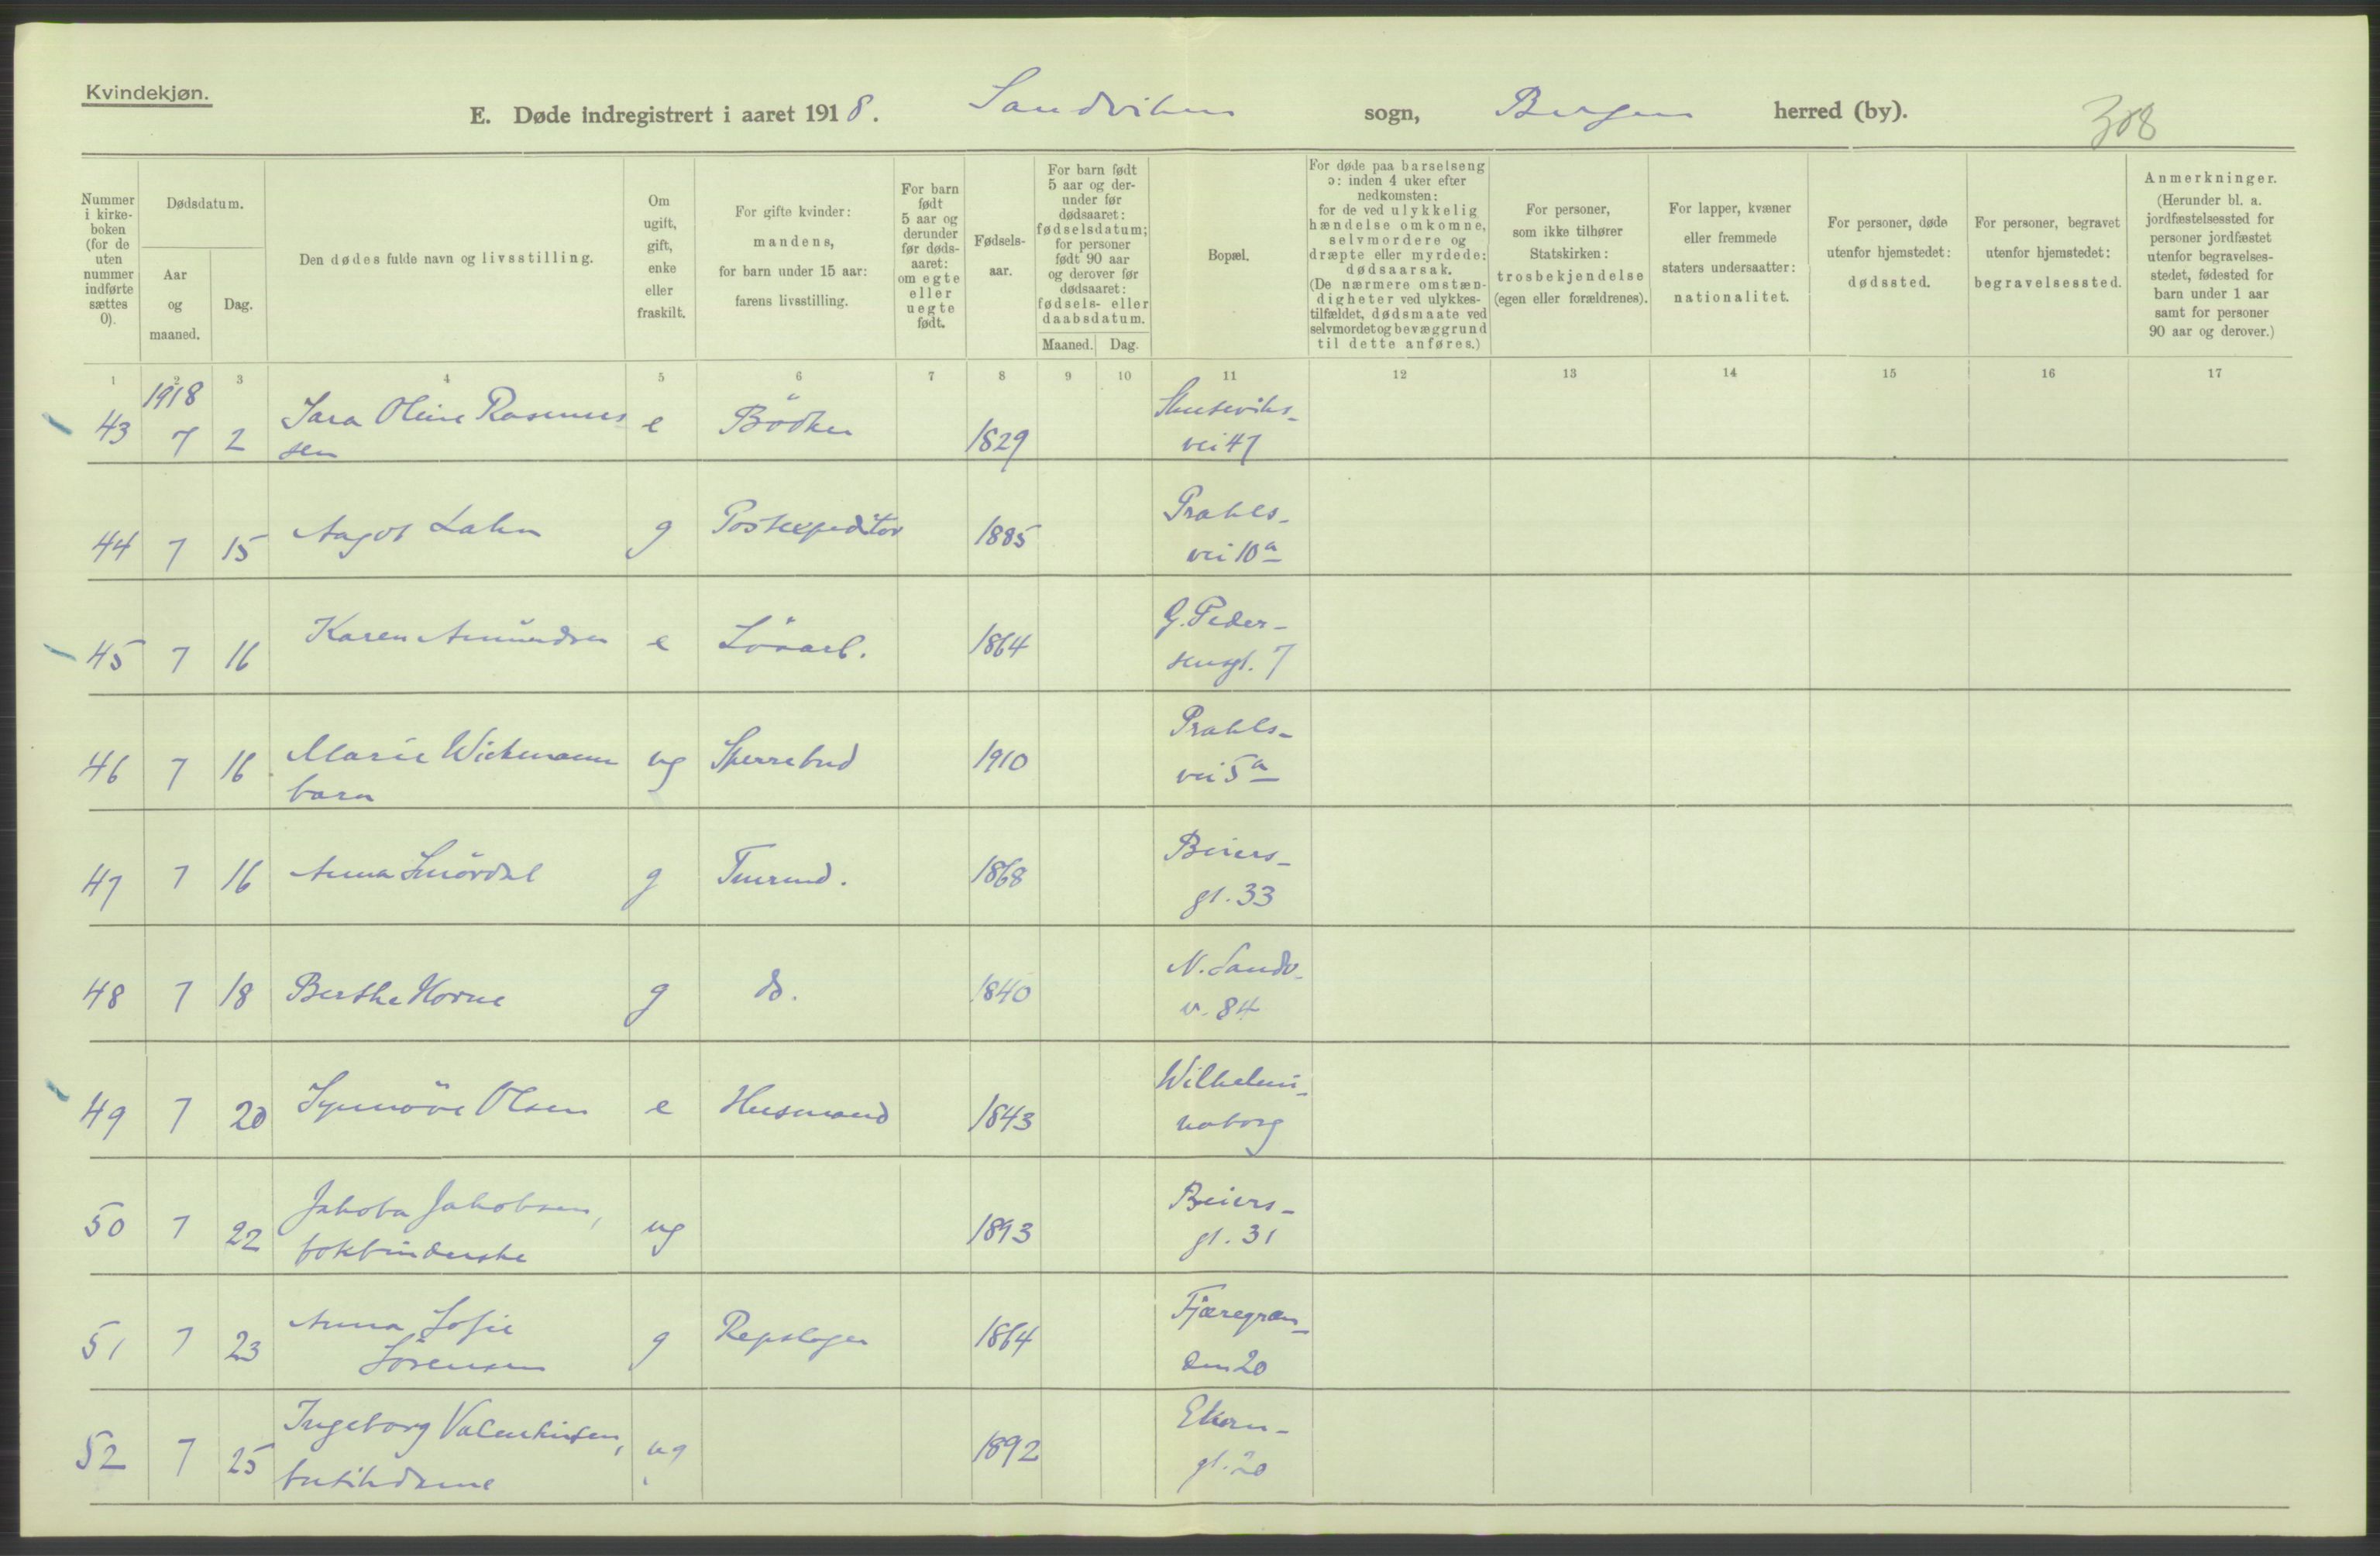 Kvindekjøn.
E. Døde indregistrert i aaret 1918. Sandviken sogn, Bergen herred (by). 308
Nummer i kirkeboken (for de uten nummer indførte sættes 0).
Dødsdatum.
Aar og maaned.
Dag.
Den dødes fulde navn og livsstilling.
Om ugift, gift, enke eller fraskilt.
For gifte kvinder: mandens, for barn under 15 aar: farens livsstilling.
For barn født 5 aar og derunder før dødsaaret: om egte eller uegte født.
Fødselsaar.
For barn født 5 aar og derunder før dødsaaret: fødselsdatum; for personer født 90 aar og derover før dødsaaret: fødsels- eller daabsdatum.
Maaned. Dag.
Bopæl.
For døde paa barselseng ɔ: inden 4 uker efter nedkomsten: for de ved ulykkelig hændelse omkomne, selvmordere og dræpte eller myrdede: dødsaarsak. (De nærmere omstændigheter ved ulykkestilfældet, dødsmaate ved selvmordet og bevæggrund til dette anføres.)
For personer, som ikke tilhører Statskirken: trosbekjendelse (egen eller forældrenes).
For lapper, kvæner eller fremmede staters undersaatter: nationalitet.
For personer, døde utenfor hjemstedet: dødssted.
For personer, begravet utenfor hjemstedet: begravelsessted.
Anmerkninger. (Herunder bl. a. jordfæstelsessted for personer jordfæstet utenfor begravelsesstedet, fødested for barn under 1 aar samt for personer 90 aar og derover.)
1 2 3 4 5 6 7 8 9 10 11 12 13 14 15 16 17
1918
43 7 2 Sara Oline Rasmussen e Bödker 1829 Skuteviksvei 47
44 7 15 Aagot Lahn g Postexpeditör 1885 Prahlsvei 10a
45 7 16 Karen Amundsen e Lösarb. 1864 G. Pedersensgt. 7
46 7 16 Marie Wichmann barn ug Sperrebud 1910 Prahlsvei 5a
47 7 16 Anna Smördal g Tmrmd. 1868 Beiersgt. 33
48 7 18 Berthe Horne g do. 1840 N. Sandv. v. 84
49 7 20 Synnöve Olsen e Husmand 1843 Wilhelminaborg
50 7 22 Jakoba Jakobsen, bokbinderske ug 1893 Beiersgt. 31
51 7 23 Anna Sofie Sörensen g Repslager 1864 Fjæregranden 20
52 7 25 Ingeborg Valentinsen, butikdame ug 1892 Ekrengt. 20